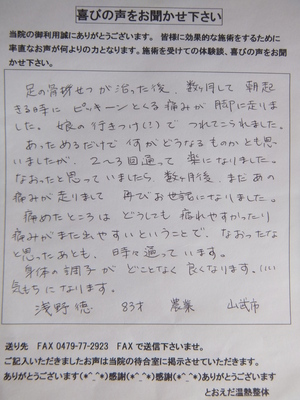 喜びの声をお聞かせ下さい
当院の御利用誠にありがとうございます。皆様に効果的な施術をするために
率直なお声が何よりの力となります。施術を受けての体験談、喜びの声をお聞
かせ下さい。
足の骨折せつが治った後、数ヶ月して朝起
きる時にピッキーンとくる痛みが脚に走りま
した。娘の行きつけ(!)でつれてこられました。
あっためるだけで何がどうなるものかとも思
いましたが、2〜3回通って楽になりました。
なおったと思っていましたら、数ヶ月後、またあの
痛みが走りまして再びお世話になりました。
痛めたところはどうしても疲れやすかったり
痛みがまた出やすいということで、なおったな
と思ったあとも、時々通っています。
身体の調子がどことなく良くなります。いい
気もちになります。
浅野 徳 83才 農業 山武市
送り先 FAX 0479-77-2923 FAXで送信下さいませ。
ご記入いただきましたお声は当院の待合室に掲示させていただきます。
ありがとうございます(*^_^*)感謝(*^_^*)感謝(*^_^*)ありがとうございます
とおえだ温熱整体